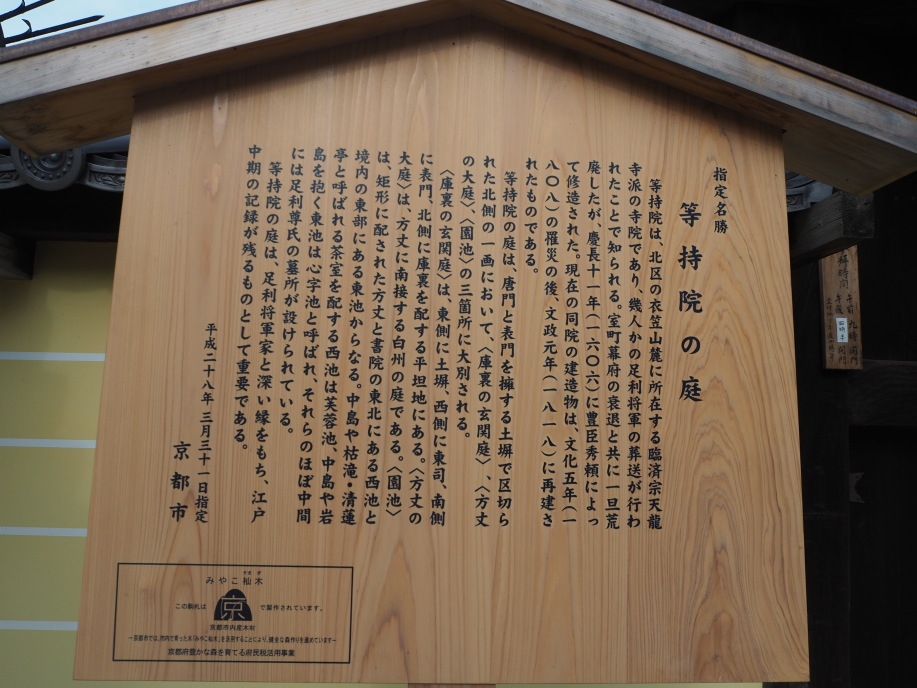 指定名勝
等持院の庭
等持院は、北区の衣笠山麓に所在する臨済宗天龍
寺派の寺院であり、幾人かの足利将軍の葬送が行わ
れたことで知られる。室町幕府の衰退と共に一旦荒
廃したが慶長十一年(一六〇六)に豊臣秀頼によっ
て修造された。現在の同院の建造物は、文化五年(一
八〇八)の罹災の後、文政元年(一八一八)に再建さ
れたものである。
等持院の庭は、唐門と表門を擁する土塀で区切ら
れた北側の一画において、〈庫裏の玄関庭〉、〈方丈
の大庭〉、〈園池〉の三箇所に大別される。
〈庫裏の玄関庭〉は、東側に土塀、西側に東司、南側
に表門、北側に庫裏を配する平坦地にある。〈方丈の
大庭〉は、方丈に南接する白州の庭である。〈園池〉
は、矩形に配された方丈と書院の東北にある西池と
境内の東部にある東池からなる。中島や枯滝・清蓮
亭と呼ばれる茶室を配する西池は芙蓉池、中島や岩
島を抱く東池は心字池と呼ばれ、それらのほぼ中間
には足利尊氏の墓所が設けられている。
等持院の庭は、足利将軍家と深い縁をもち、江戸
中期の記録が残るものとして重要である。
平成二十八年三月三十一日指定
京都市
みやこ杣木
この駒札は 京 で製作されています。
京都市内産木材
~京都市では、市内で育った木「みやこ杣木」を活用することにより、健全な森作りを進めています~
京都府豊かな森を育てる府民税活用事業